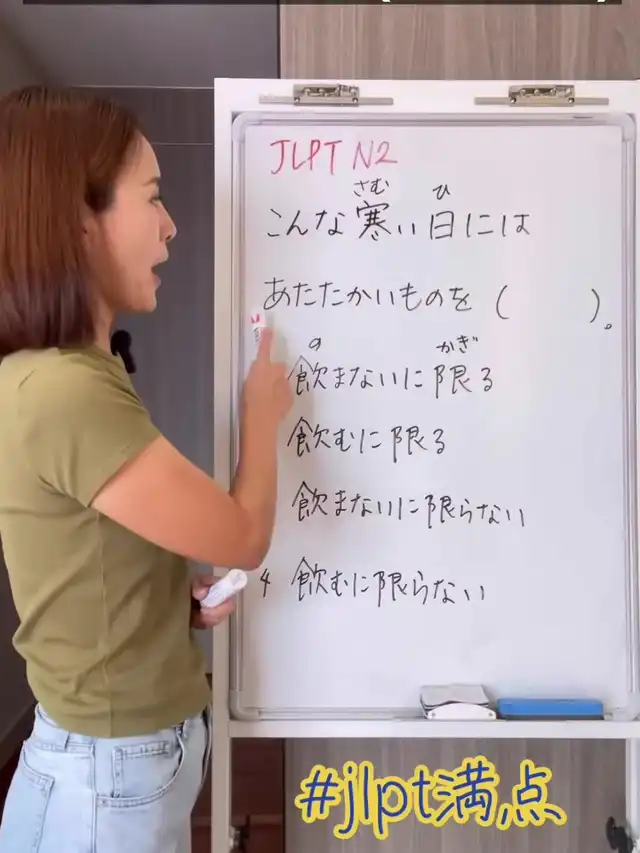 JLPT N2
さむ ひ
こんな寒い日には
あたたかいものを( )。
の かぎ
飲まないに限る
飲むに限る
飲まないに限らない
4 飲むに限らない
#jlpt満点